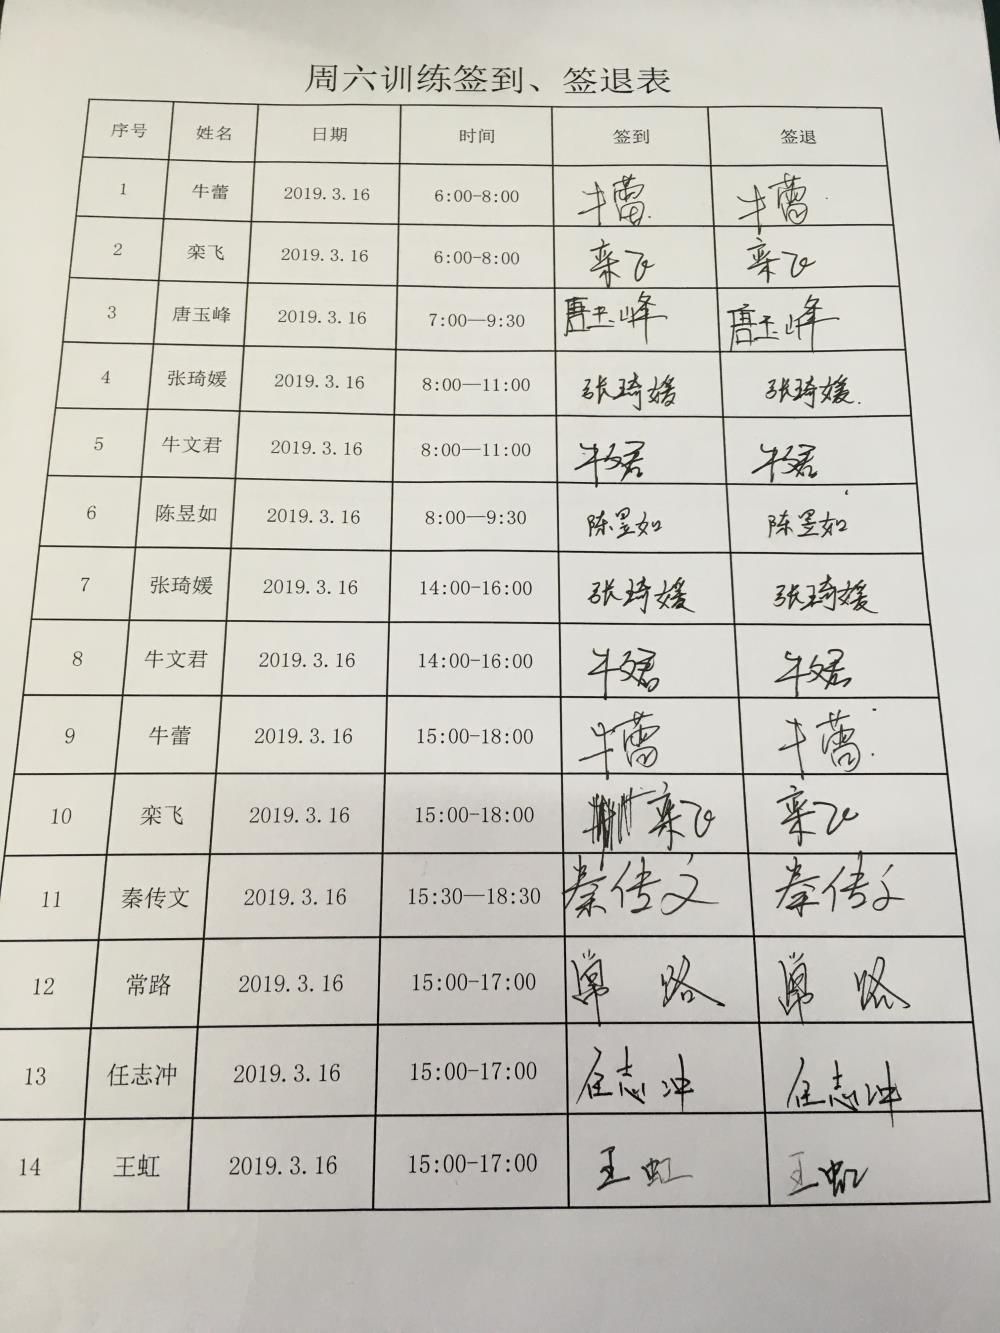 周六训练签到、签退表
序号 姓名 日期 时间 签到 签退
1 牛蕾 2019.3.16 6:00-8:00 牛蕾. 牛蕾.
2 栾飞 2019.3.16 6:00-8:00 栾飞 栾飞
3 唐玉峰 2019.3.16 7:00—9:30 唐玉峰 唐玉峰
4 张琦媛 2019.3.16 8:00—11:00 张琦媛 张琦媛.
5 牛文君 2019.3.16 8:00—11:00 牛文君 牛文君
6 陈昱如 2019.3.16 8:00—9:30 陈昱如 陈昱如
7 张琦媛 2019.3.16 14:00-16:00 张琦媛 张琦媛
8 牛文君 2019.3.16 14:00-16:00 牛文君 牛文君
9 牛蕾 2019.3.16 15:00-18:00 牛蕾 牛蕾.
10 栾飞 2019.3.16 15:00-18:00 栾飞 栾飞
11 秦传文 2019.3.16 15:30—18:30 秦传文 秦传文
12 常路 2019.3.16 15:00-17:00 常路 常路
13 任志冲 2019.3.16 15:00-17:00 任志冲 任志冲
14 王虹 2019.3.16 15:00-17:00 王虹 王虹